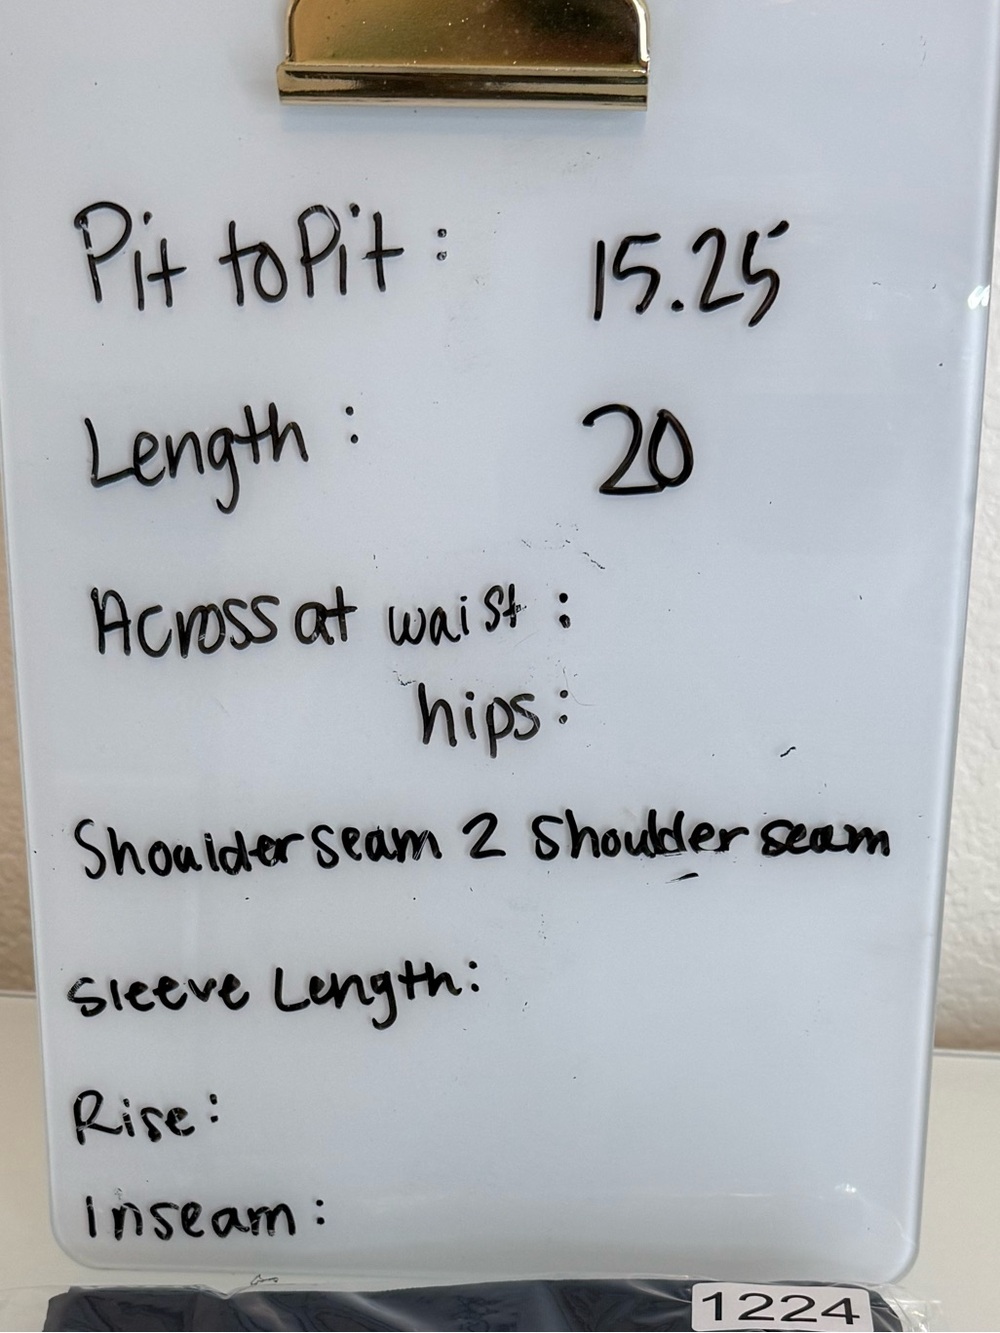 Pit to Pit: 15.25
Length: 20
Across at waist:
hips:
Shoulder seam 2 Shoulder seam
Sleeve Length:
Rise:
Inseam:
1224